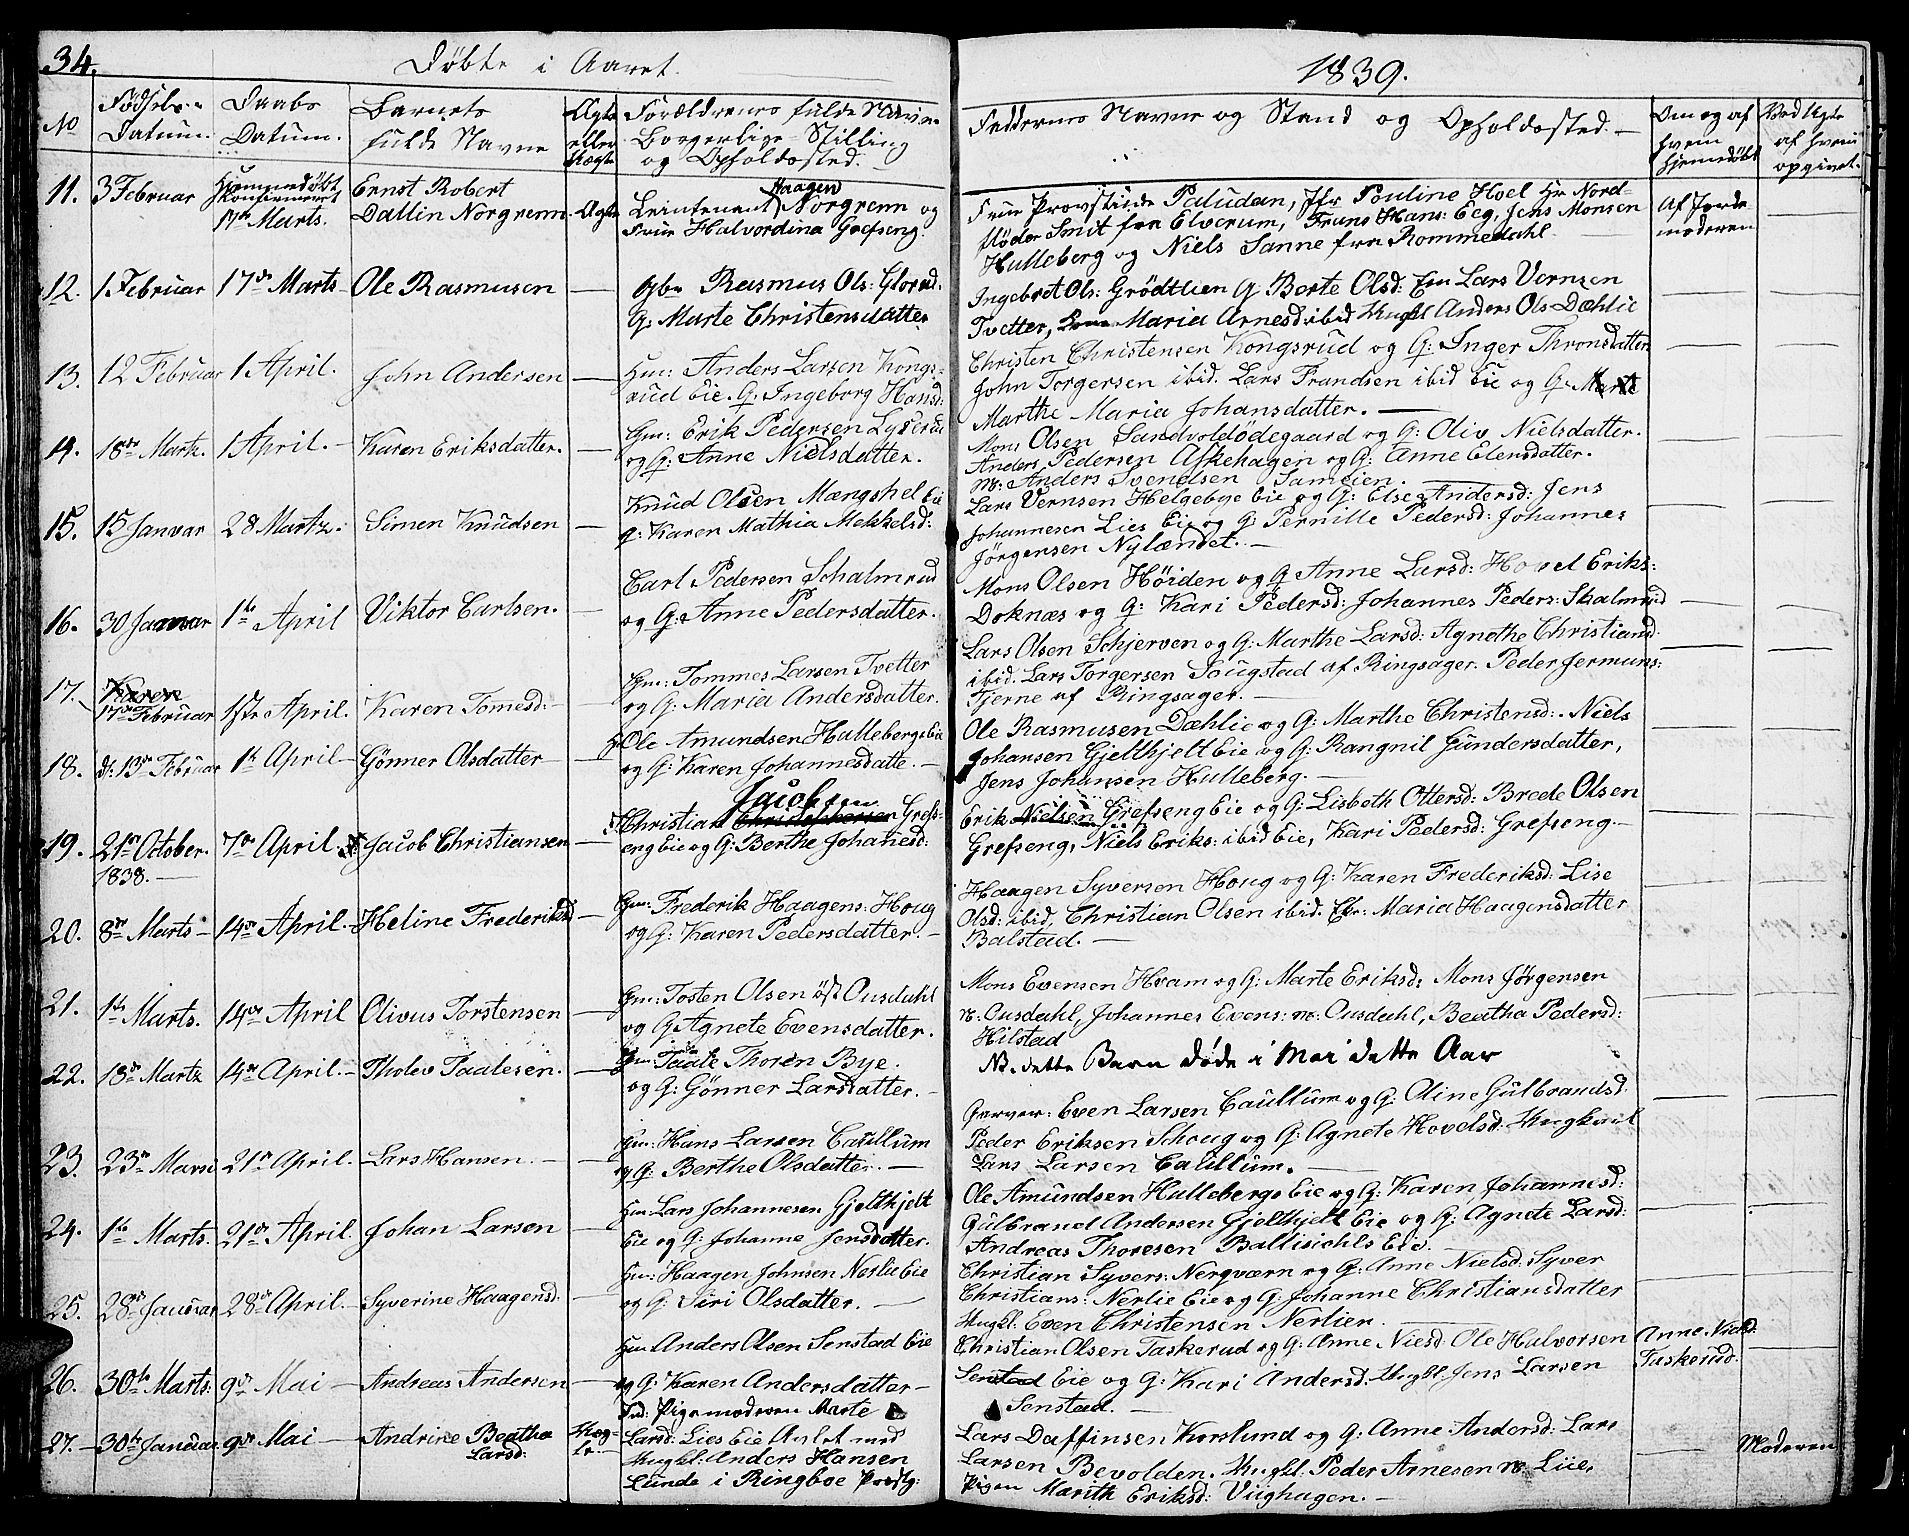 34.
Døbte i Aaret
1839.
No
Fødsels-
Datum.
Daabs
Datum.
Barnets
fulde Navne
Ægte
eller
Uægte
Forældrenes fulde Navne
Borgerlige Stilling
og Opholdssted.
Faddernes Navne og Stand og Opholdssted.
Om og af
hvem
hjemmedøbt
Ved Uægte
af hvem
opgivet.
11. 3 Februar
Hjemmedøbt
Konfirmeret
17de Marts.
Ernst Robert
Dallin Norgrenn.
Ægte
Haagen
Leintenant Norgrenn og
Frue Halvordina Grefseng.
Frue Provstinde Paludan, Jfr Pouline Hoel Hr Nord-
fløder Smit fra Elverum, Frans Hans: Eeg, Jens Monsen
Hulleberg og Niels Sanne fra Rommedahl
Af Jorde-
moderen
12. 1 Februar 17de Marts Ole Rasmusen
Rasmus Ols: Glorud.
G: Marte Christensdatter
Ingebret Ols: Grödtlien G Berte Olsd: Lars Vernsen
Tvetter, Maria Arnesd: ibid Ungkl Anders Ols Dæhlie
13. 12 Februar 1 April. John Andersen
Gm: Anders Larsen Kongs-
rud Eie. G. Ingeborg Hansd:
Christen Christensen Kongsrud og G: Inger Thronsdatter
John Torgersen ibid. Lars Frandsen ibid Eie og G:
Marthe Maria Johansdatter.
14. 18de Martz. 1 April. Karen Eriksdatter.
Gm: Erik Pedersen Lyserud
og G: Anne Nielsdatter.
Mons Olsen Sandvoldødegaard og G: Oliv Nielsdatter.
Anders Pedersen Askehagen og G: Anne Elensdatter.
N: Anders Svendsen Sameien.
15. 15 Januar 28 Martz. Simen Knudsen
Knud Olsen Mængshol Eie
G: Karen Mathia Mekkelsd:
Lars Vernsen Helgebye Eie og G: Else Andersd: Jens
Johannesen Lies Eie og G: Pernille Pedersd: Johannes
Jörgensen Nylændet.
16. 30 Januar 1te April Viktor Carlsen.
Carl Pedersen Schalmrud
og G: Anne Pedersdatter.
Mons Olsen Höiden og G Anne Larsd: Hovel Eriks:
Doknæs og G: Kari Pedersd: Johannes Peders: Skalmrud
17. 17de Februar 1ste April. Karen Tomesd:
Gm: Tommes Larsen Tvetter
og G: Maria Andersdatter.
Lars Olsen Schjerven og G: Marthe Larsd: Agnethe Christiansd
ibid. Lars Torgersen Sougstad af Ringsager. Peder Jermuns:
Tjerne af Ringsager.
18. d: 13de Februar 1te April Gönner Olsdatter
Ole Amundsen Hullebergs Eie
og G: Karen Johannesdatte.
Ole Rasmusen Dæhlie og G: Marthe Christensd: Niels
Johansen Gjeltkjelt Eie og G: Rangnil Gundersdatter,
Jens Johansen Hulleberg.
19. 21de October.
1838.
7de April. Jacob Christiansen
Jacobsen
Christian Christophersen Grefs-
eng Eie og G: Berthe Johanesd:
Erik Nielsen Grefseng Eie og G: Lisbeth Ottersd: Brede Olsen
Grefseng, Niels Eriks: ibid Eie, Kari Pedersd: Grefseng.
20. 8de Marts 14de April. Heline Frederiksd
Gm: Frederik Haagens: Houg
og G: Karen Pedersdatter.
Haagen Syversen Houg og G: Karen Frederiksd: Lise
Olsd: ibid. Christian Olsen ibid. Maria Haagensdatter
Balstad.
21. 1te Marts. 14de April Olivus Torstensen
Gm: Tosten Olsen öst Ousdahl
og G: Agnete Evensdatter.
Mons Evensen Hvam og G: Marte Eriksd: Mons Jörgensen
N: Ousdahl, Johannes Evens: N: Ousdahl, Beatha Pedersd:
Hilstad
22. 18de Martz 14de April. Tholev Taalesen.
Gm: Taale Thoren Bye.
og G: Gönner Larsdatter.
NB. dette Barn døde i Mai dette Aar
23. 23de Marts 21de April. Lars Hansen.
Gm: Hans Larsen Caullum
og G: Berthe Olsdatter.
Even Larsen Caullum og G: Oline Gulbrandsd:
Peder Eriksen Schoug og G: Agnete Hovelsd: Ungkarl
Lars Larsen Caullum.
24. 1te Marts. 21de April. Johan Larsen
Gm Lars Johannesen Gjeltkjelt
Eie og G: Johanne Jensdatter.
Ole Amundsen Hullebergs Eie og G: Karen Johannesd:
Gulbrand Andersen Gjeltkjelt Eie og G: Agnete Larsd:
Andreas Thoresen Ballisichls Eie.
25. 28de Januar 28de April. Syverine Haagensd:
Gm: Haagen Johnsen Nerlie Eie
og G: Siri Olsdatter.
Christian Syvers: Nergværn og G: Anne Nielsd: Syver
Christians: Nerlie Eie og G: Johanne Christiansdatter
Ungkl: Even Christensen Nerlien.
26. 30te Marts. 9de Mai Andreas Andersen
Gm Anders Olsen Senstad Eie
og G: Karen Andersdatter
Christian Olsen Taskerud og G: Anne Niesd: Ole Halvorsen
Senstad Eie og G: Kari Andersd: Ungkl. Jens Larsen
Senstad.
Anne Nielsd:
Taskerud.
27. 30te Januar. 9de Mai Andrine Beatha
Larsd:
Uæg-
te
Pigemoderen Marte
Larsd: Lies Eie Avlet med
Ungkl: Anders Hansen
Lunde i Ringboe Præstg:
Lars Daffinsen Korslund og G: Anne Andersd: Lars
Larsen Bevolden. Ungkl: Peder Arnesen N: Lüe,
Pigen Marith Eriksd: Viighagen.
Moderen